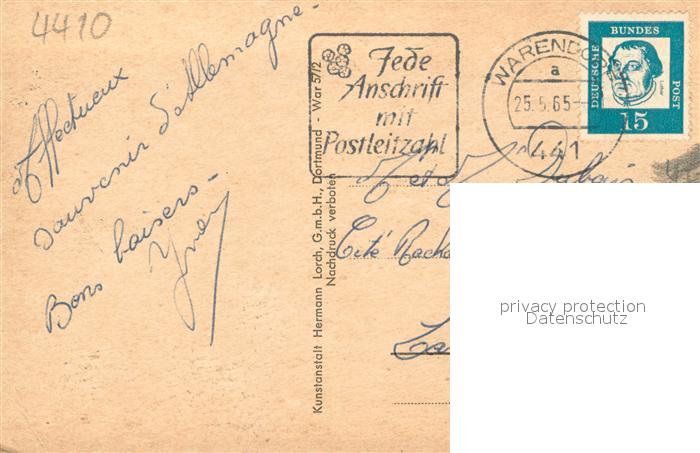 4410
Affectueux
souvenir d'Allemagne -
Bons baisers -
Jede
Anschrift
mit
Postleitzahl
WARENDO
a
25.5.65-
441
DEUTSCHE
BUNDES
POST
15
Kunstanstalt Hermann Lorch, G.m.b.H., Dortmund - War 57/2
Nachdruck verboten
M et M
Cité
privacy protection
Datenschutz